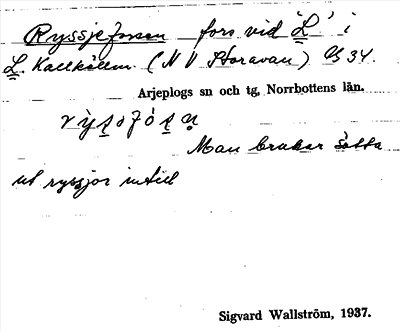 Ryssjeforsen fors vid 'L' i
L. Kallkällem. (N V Storavan) G 34.
Arjeplogs sn och tg, Norrbottens län.
Man brukar sätta
ut ryssjor intill
Sigvard Wallström, 1937.